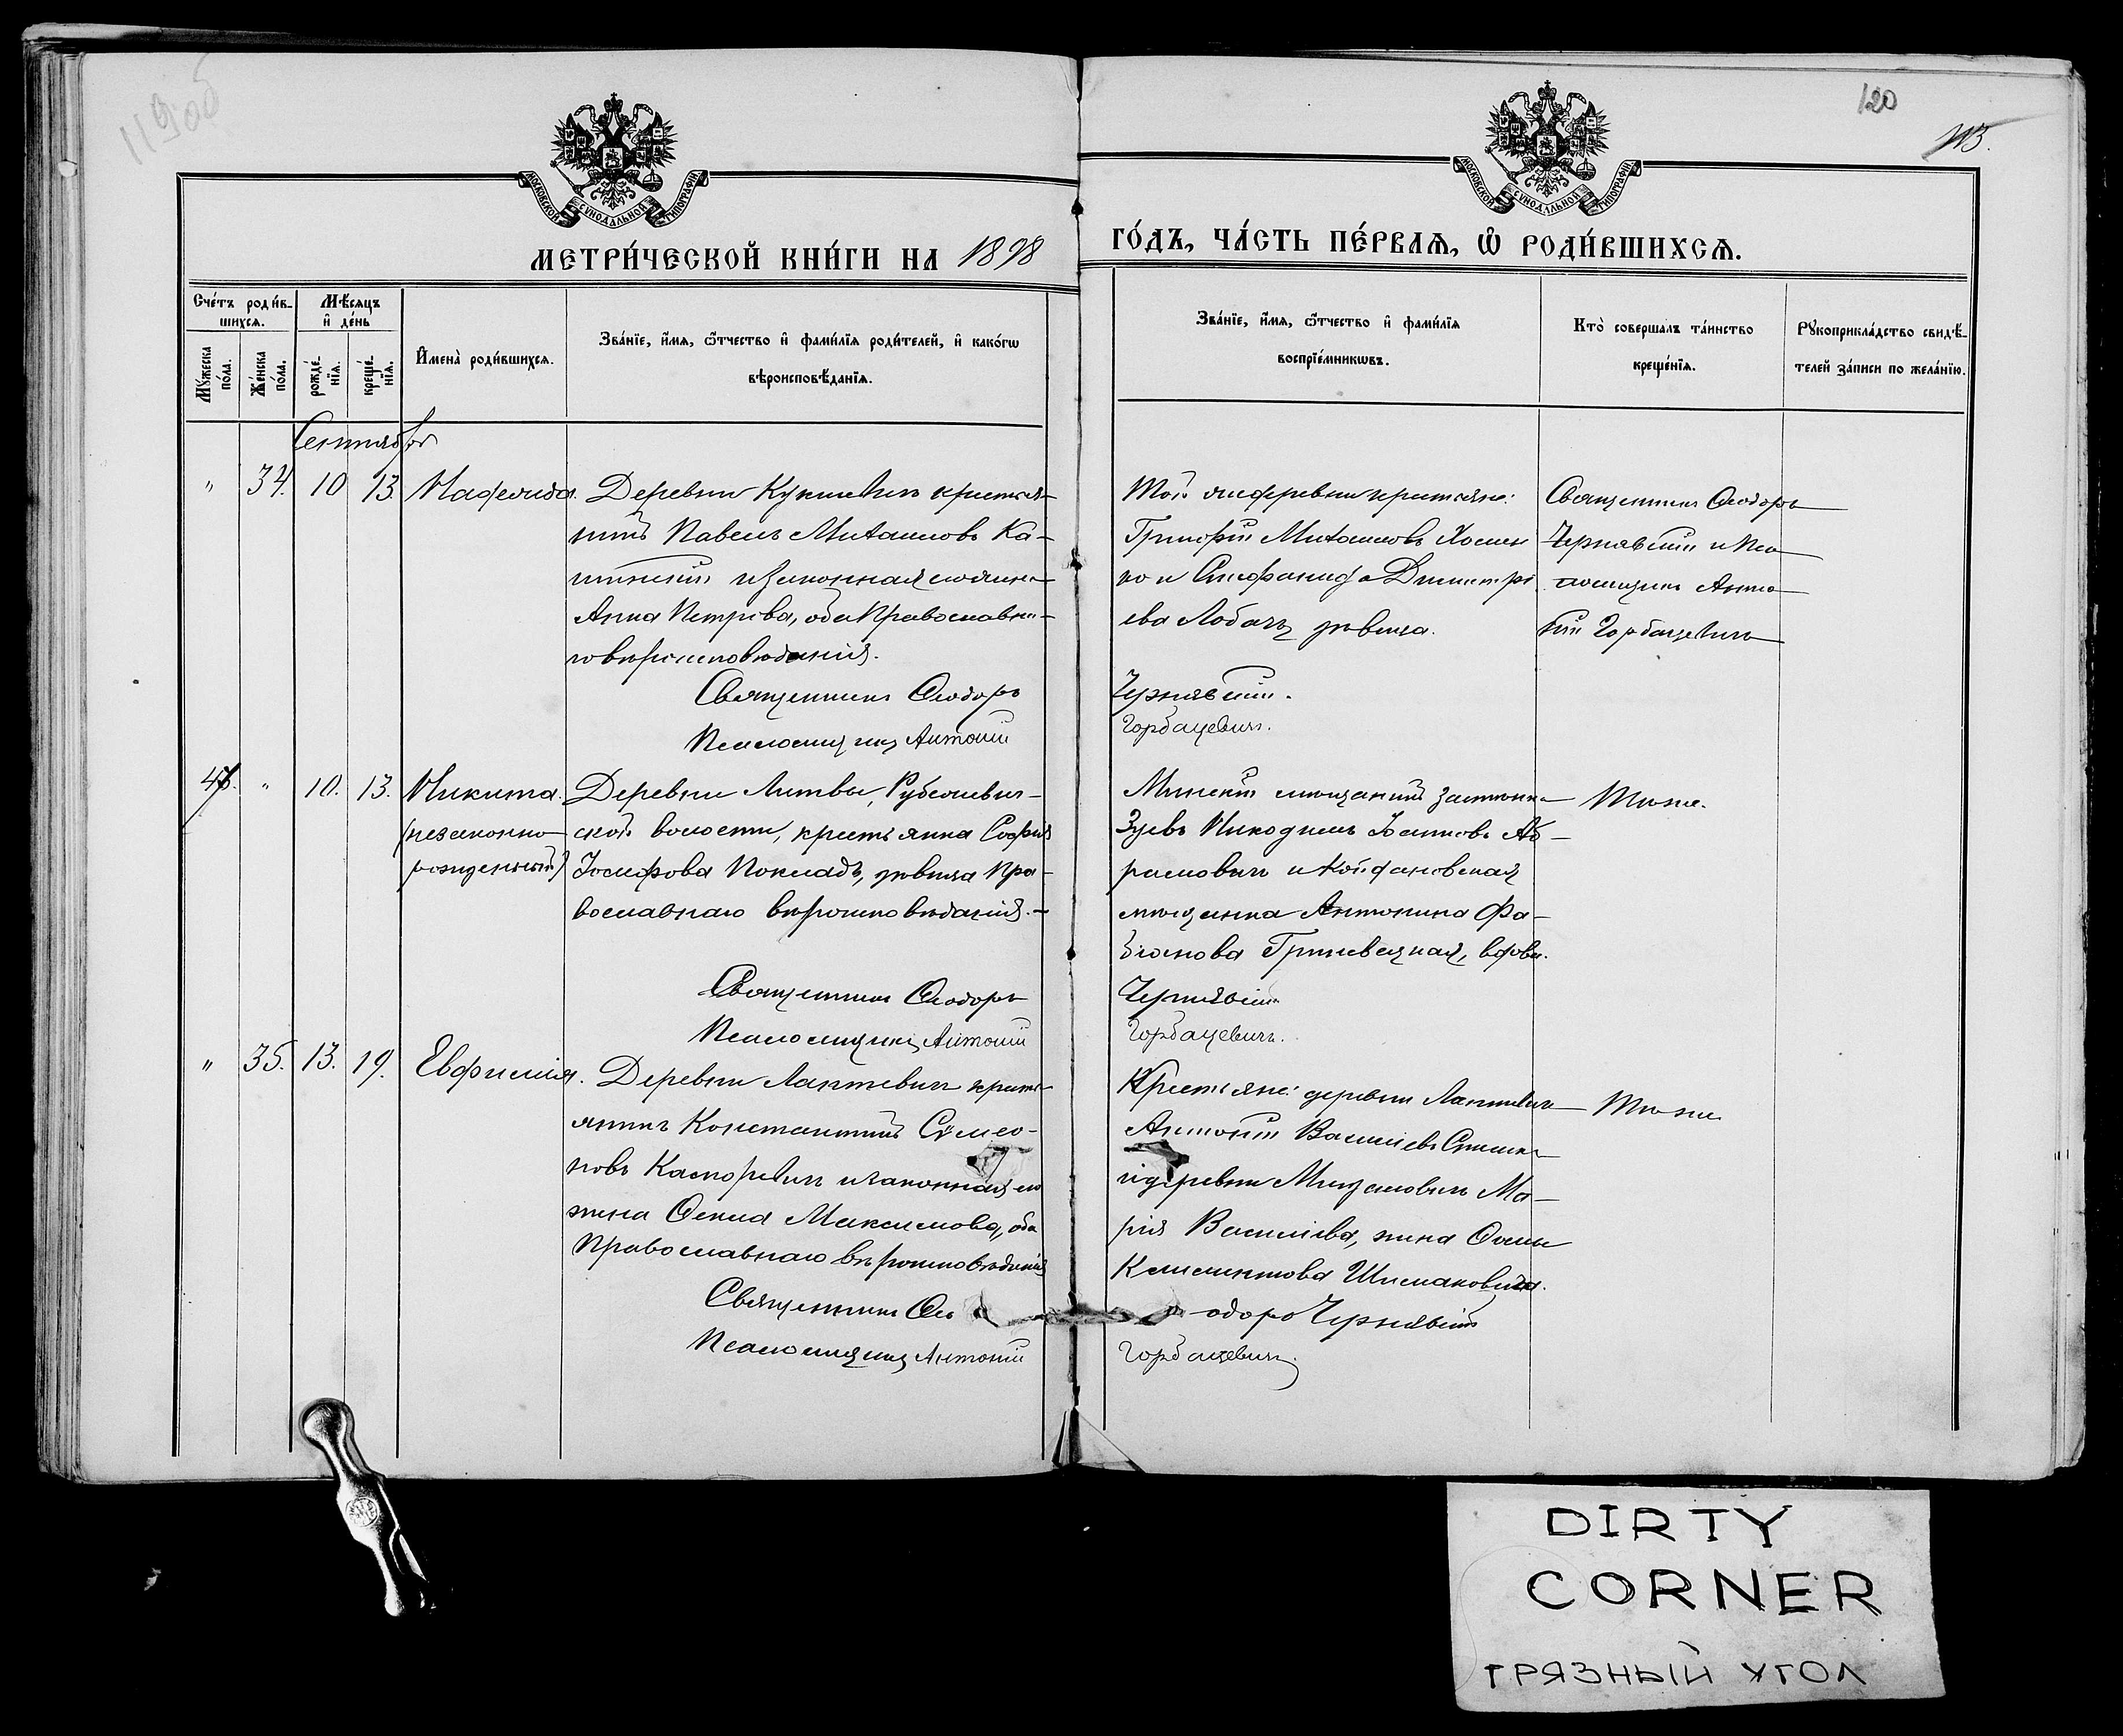 119 об
120
113.
МОСКОВСКОЙ СѴНОДАЛЬНОЙ ТИПОГРАФІИ
МОСКОВСКОЙ СѴНОДАЛЬНОЙ ТИПОГРАФІИ
МЕТРИ́ЧЕСКОЙ КНИ́ГИ НА 1898
ГО́ДЪ, ЧА́СТЬ ПЕ́РВАѦ, Ѡ РОДИ́ВШИХСѦ.
Сче́тъ роди́в-
шихсѧ.
Мѣ́сѧцъ
и҆ де́нь
Мꙋ́жеска
по́ла.
Же́нска
по́ла.
рожде́-
нїѧ.
креще́-
нїѧ.
И҆мена̀ роди́вшихсѧ.
Зва́нїе, и҆́мѧ, ѻ҆́тчество и҆ фами́лїѧ роди́телей, и҆ како́гѡ
вѣроисповѣ́данїѧ.
Зва́нїе, и҆́мѧ, ѻ҆́тчество и҆ фами́лїѧ
воспрїе́мникѡвъ.
Кто̀ совершалъ та́инство
креще́нїѧ.
Рꙋкоприкла́дство свидѣ́-
телей за́писи по жела́нїю.
Сентябрь
" 34. 10 13 Деревни крестья-
нинъ Павелъ Михаиловъ Ка-
и законная его жена
Анна Петрова, оба Православна-
го вѣроисповѣданія.
Священникъ Ѳеодоръ
Псаломщикъ Антоній
Той же деревни крестьяне:
Григорій Михаиловъ Хомен
ко и Стефанида Димитрі
ева Лобачъ, дѣвица.
Чернявскій.
Горбацевичъ.
Священникъ Ѳеодоръ
Чернявскій и Пса
ломщикъ Анто
ній Горбацевичъ
" 10. 13. Никита.
(незаконно
рожденный)
Деревни Литвы, Рубежевич-
ской волости, крестьянка Софія
Іосифова Покладъ, дѣвица Пра-
вославнаго вѣроисповѣданія.-
Священникъ Ѳеодоръ
Псаломщикъ Антоній
Минскій мѣщанинъ застѣнка
Никодимъ Аб-
рамовичъ и Койдановская
мѣщанка Антонина Фа-
біанова вдова.
Чернявскій
Горбацевичъ.
Тѣже.
" 35. 13. 19. Евфимія.
Деревни Лактевичъ кресть-
янинъ Константинъ Сѷмео-
новъ Каспоревичъ и законная его
жена Ѳекла Максимова, оба
Православнаго вѣроисповѣданія
Священникъ Ѳе
Псаломщикъ Антоній
Крестьяне: деревни Лактевичъ
Антоній Василіевъ
и деревни Ма-
рія Василіева, жена Ѳомы
Климентова Шимановича.
одоръ Чернявскій
Горбацевичъ.
Тѣже
DIRTY
CORNER
ГРЯЗНЫЙ УГОЛ